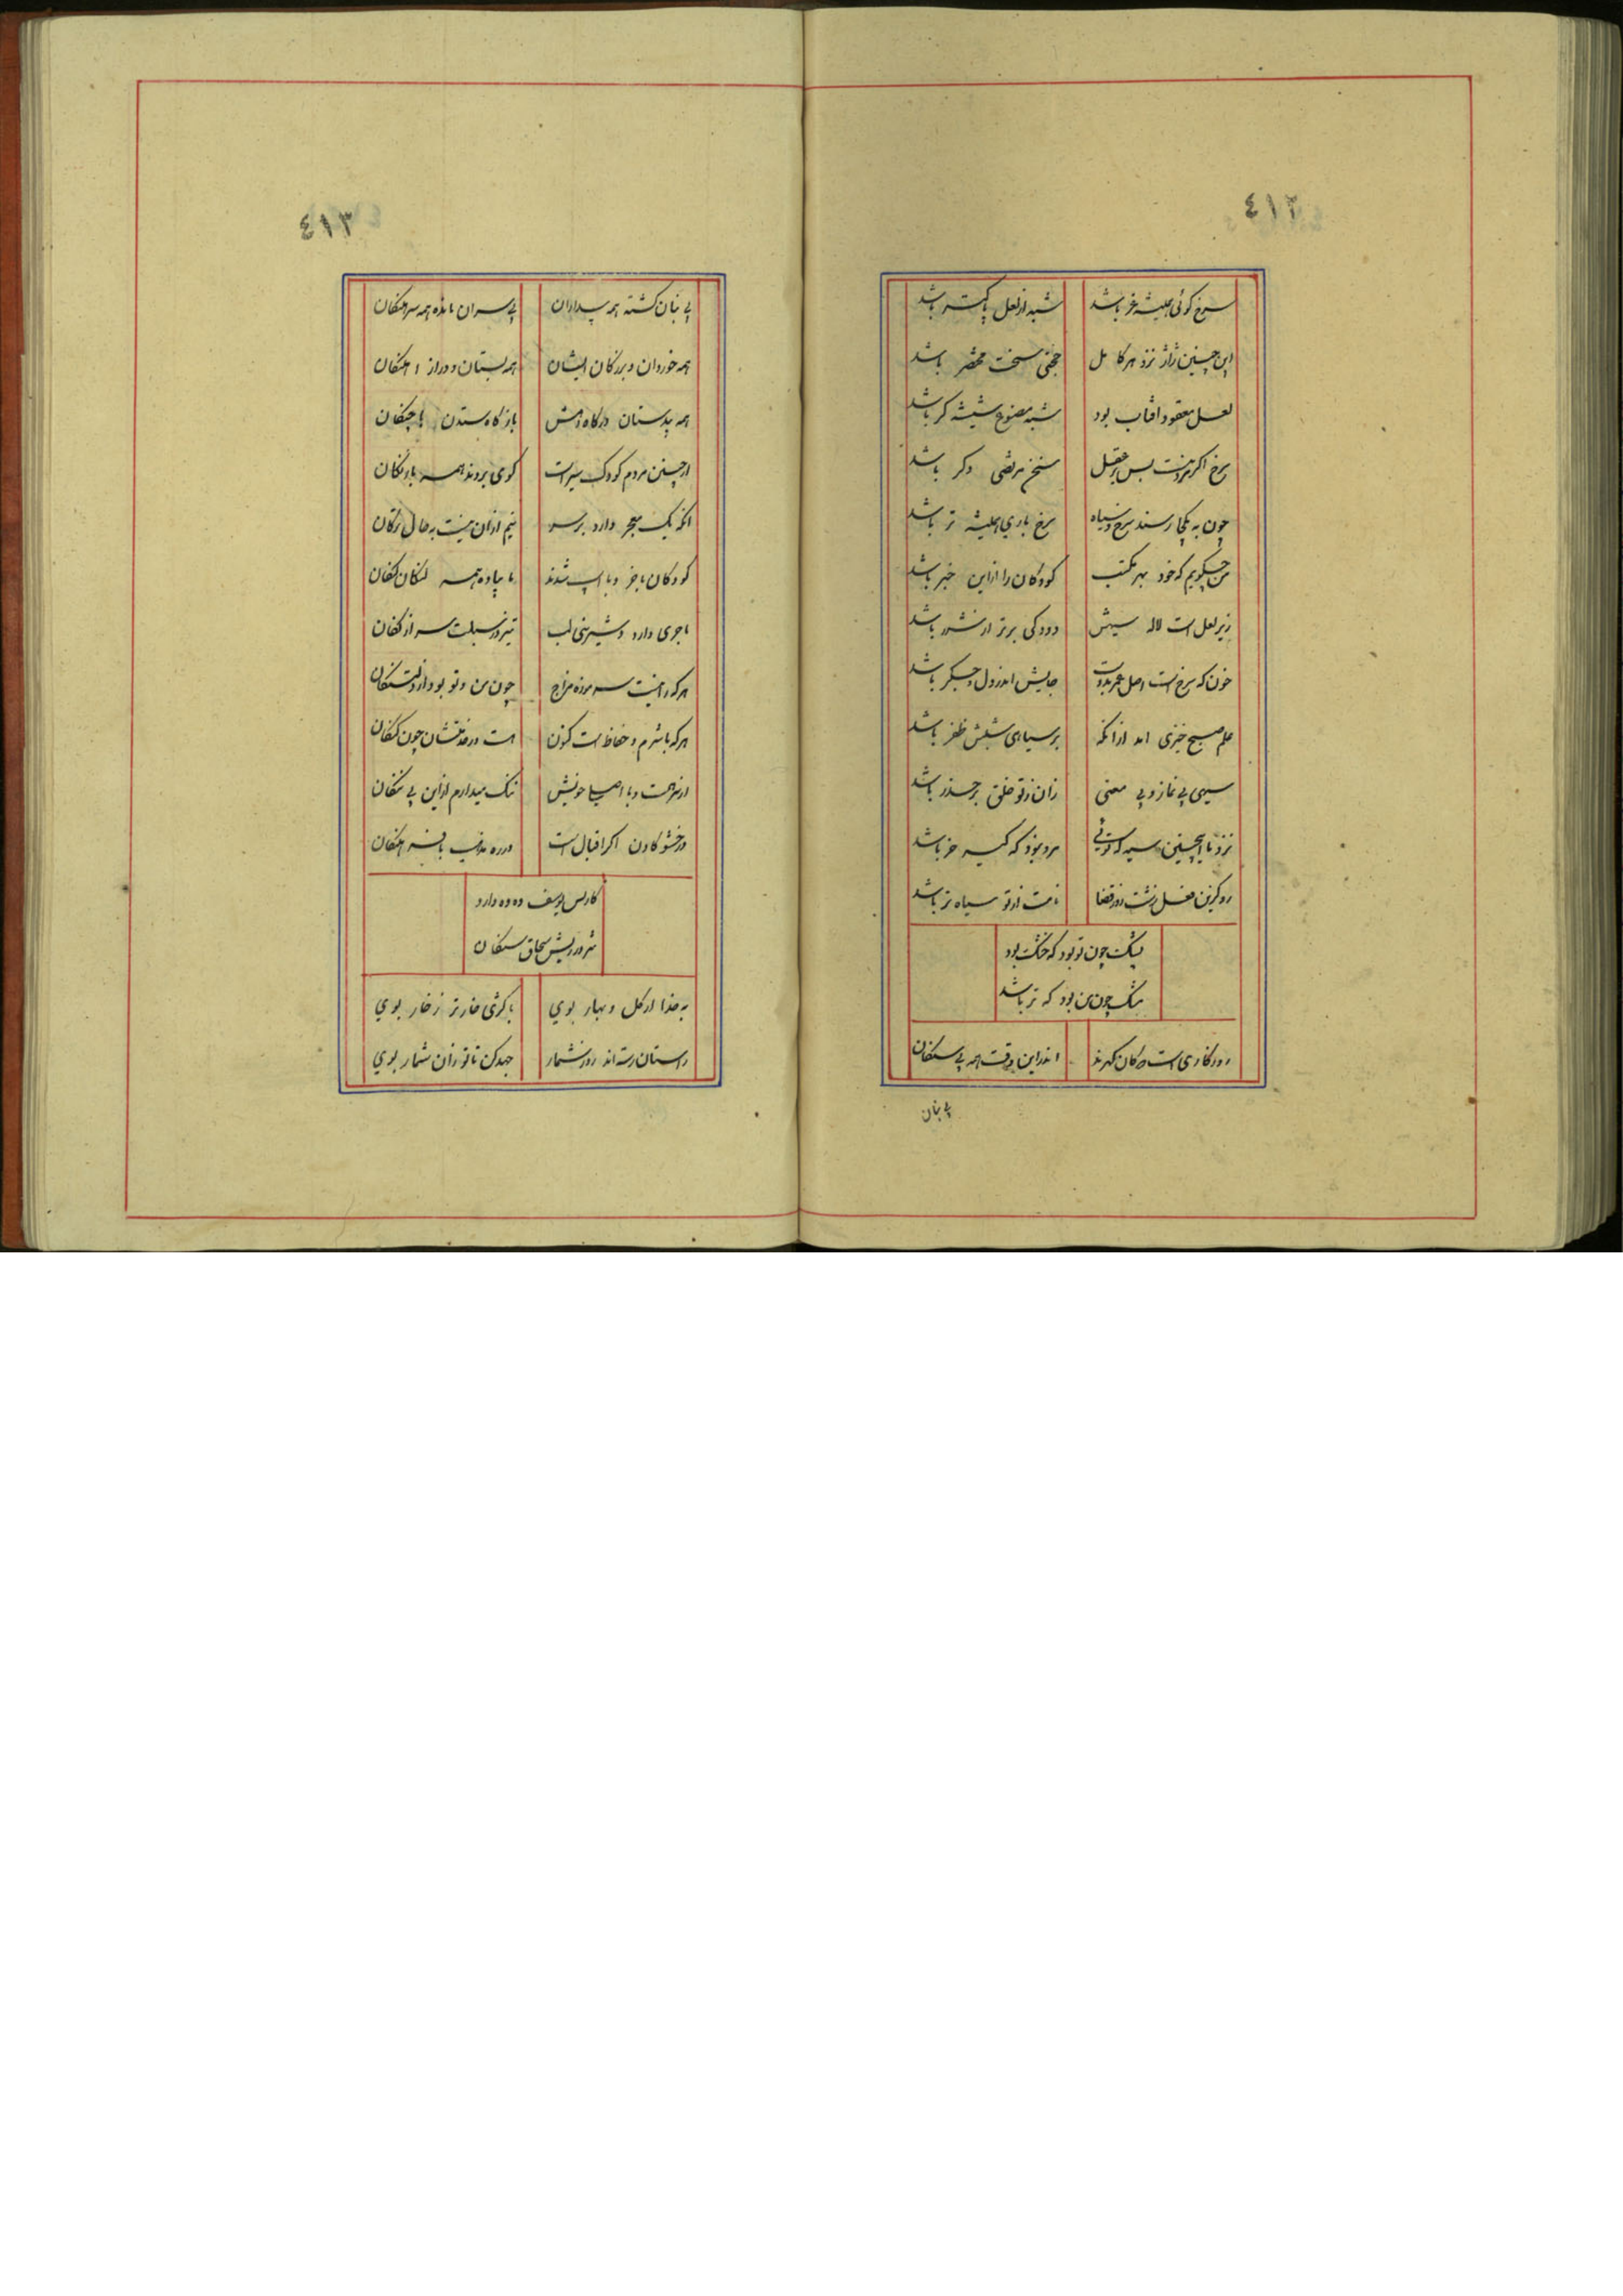 ٤١٢
سرخ گوئی همیشه خر باشد شبه از لعل پاکتر باشد
این چنین ژاژ نزد هر کامل حجتی سخت مختصر باشد
لعل معقود افتاب بود شبه مصنوع شیشه گر باشد
سرخ اگر نیست بس بر عقل سرخ مریخی دکر باشد
چون به یکجا رسند سرخ و سیاه سرخ باری همیشه تر باشد
من چکویم که خود بهر مکتب کودکان را ازین خبر باشد
زیر لعل است لاله سیهش دودکی برتر از شرر باشد
خون که سرخ است اصل عمر بدوست جایش اندر دل و جگر باشد
علم صبح خیزی امد ازانکه بر سیاهی شبش ظفر باشد
سیهی بی نماز و بی معنی زان ز تو خلق بر حذر باشد
نزد ما اینچنین سیه که توئی مرد نبود که کیسه خر باشد
رو که زین فعل زشت روز قضا نامت از تو سیاه تر باشد
پشکت چون تو بود که خشک بود
مشک چون من بود که تر باشد
روزگاری است کان گهرند اندر این وقت همه بی سنگان
بی بنان
٤١٣
بی بنان کشته همه پیداران بی سران مانده همه سرهنگان
همه خوردان و بزرگان ایشان همه بستان و دراز اهنگان
همه پدستان درگاه دهش باز گاه ستدن با چنگان
از چنین مردم کودک سیرت گوی بردند همه بادنگان
انکه یک معجر دارد بر سر نیم ازان نیست به حال زنگان
کودکان با خر و با اسپ شدند ما پیاده همه لنگان لنگان
ماجری دارد و شیرینی لب تیز در سبلت سر از کفان
هر که را نیست سه موزه مزاج چون من و تو بود از دلتنگان
هر که با شرم و حفاظ است کنون هست در خدمتشان چون گنگان
از نزهت و با اصبا خویش ننگ میدارم ازین بی ننگان
در خشو کادن اگر اقبال است در ره مذهب با فرهنگان
کار کس یوسف ده ده دارد
نه در ریش سحاق سنگان
به خدا ار گل و بهار بوی با کژی خارتر ز خار بوی
راستان رسته اند روز شمار جهد کن تا تو زان شمار بوی